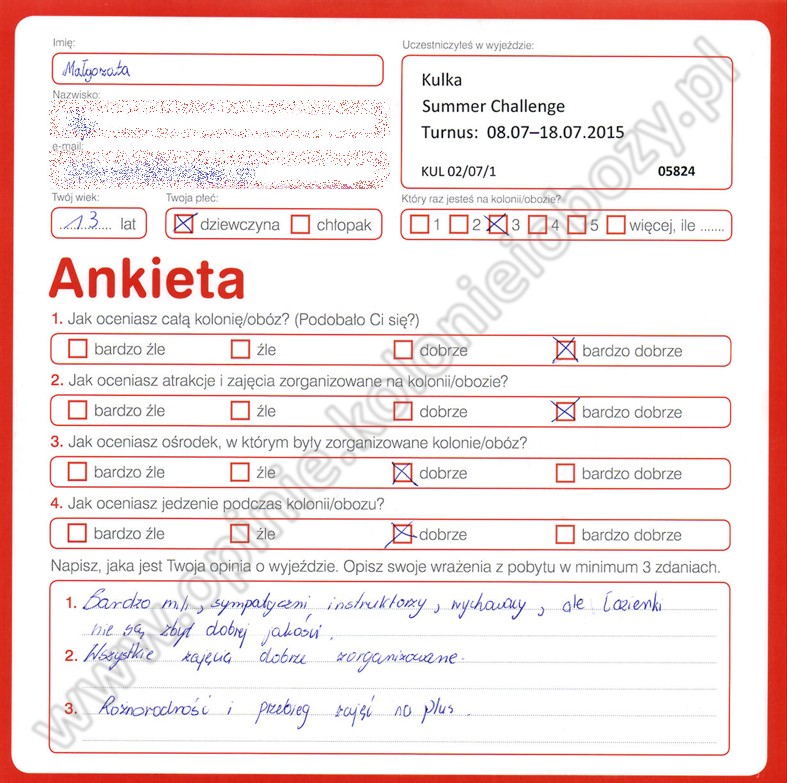 Imię:
Małgorzata
Nazwisko:
e-mail:
Uczestniczyłeś w wyjeździe:
Kulka
Summer Challenge
Turnus: 08.07–18.07.2015
KUL 02/07/1 05824
Twój wiek:
13 lat
Twoja płeć:
dziewczyna chłopak
Który raz jesteś na kolonii/obozie?
1 2 3 4 5 więcej, ile .......
Ankieta
1. Jak oceniasz całą kolonię/obóz? (Podobało Ci się?)
bardzo źle źle dobrze bardzo dobrze
2. Jak oceniasz atrakcje i zajęcia zorganizowane na kolonii/obozie?
bardzo źle źle dobrze bardzo dobrze
3. Jak oceniasz ośrodek, w którym były zorganizowane kolonie/obóz?
bardzo źle źle dobrze bardzo dobrze
4. Jak oceniasz jedzenie podczas kolonii/obozu?
bardzo źle źle dobrze bardzo dobrze
Napisz, jaka jest Twoja opinia o wyjeździe. Opisz swoje wrażenia z pobytu w minimum 3 zdaniach.
1. Bardzo mili, sympatyczni instruktorzy, wychowawcy, ale łazienki
nie są zbyt dobrej jakości.
2. Wszystkie zajęcia dobrze zorganizowane.
3. Roznorodność i przebieg zajęć na plus.
www.opinie.kolonieiobozy.pl